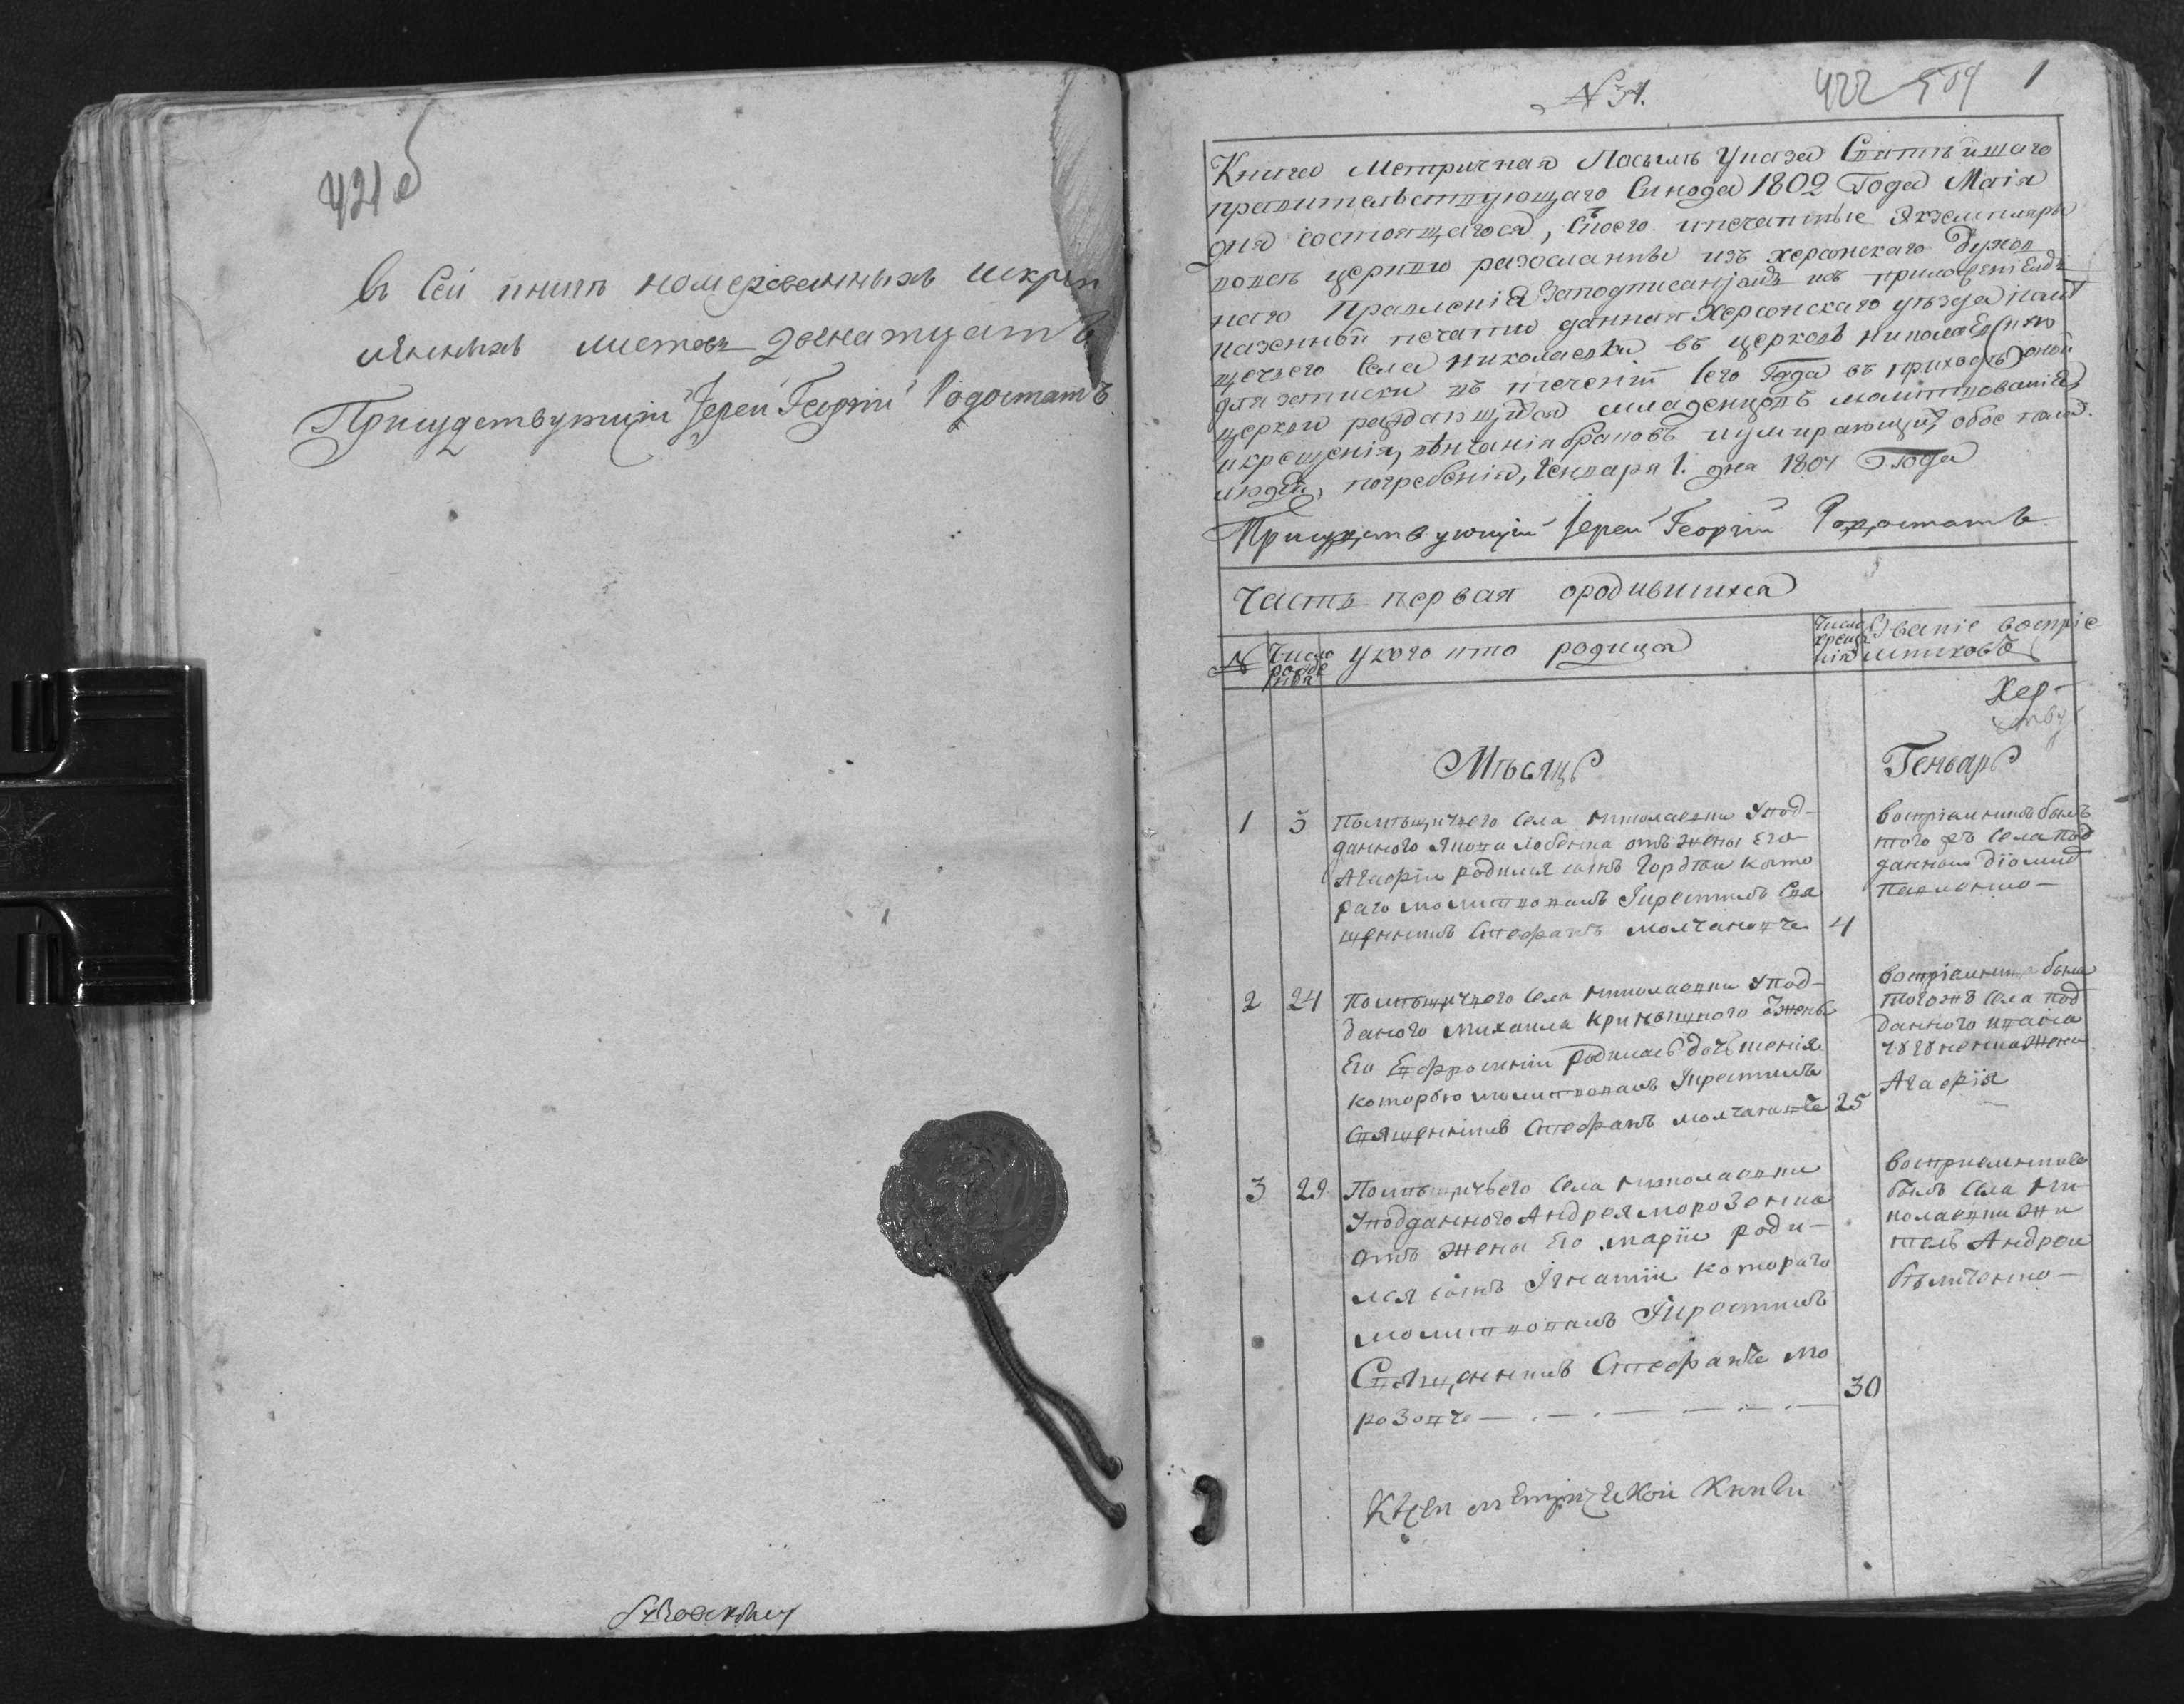 421 об
Въ Сей книге номерованныхъ и скреп
леннихъ листовъ двенатцать
Присудствующій Іерей Георгій Родостатъ
N 31.
422 504 1
Книга Метричная Посылѣ Указа Святѣйшаго
правительствующаго Синода 1802 Года Маія
дня состоявщагося, Своего ипечатные Экземпляры
повсѣ церкви разосланны изъ херсонскаго Духов
наго Правленія Заподписаніемъ исъ приложеніемъ
казенной печати данная Херсонскаго уѣзда помѣ
щечьего Села Николаевки въ церковь Николаевскую
для записки въ теченіи сего Года въ приходѣ оной
церкви раждающихся младенцовъ молитвованія
икрещенія, вѣнчанія браковъ иумирающихъ обоего пола
людей, погребенія, Генваря 1. дня 1804 Года
Присудствующій Іерей Георгій Родостатъ
Часть первая ородившихся
N Число рожденія укого кто родился Число крещенія Званіе воспріе
мниковъ
Хер-
Мѣсяцъ Генварь
1 3 Помѣщичего Села николаевки Упод-
данного Якова лобенка отъ жены Его
Агафіи родился сынъ Гордѣй кото
раго молитвовалъ Iкрестилъ Свя
щенникъ Стефанъ молчановъ 4
воспріемникъ былъ
того жъ Села под
данный Діомид
Павленко —
2 24 Помѣщичего Села николаевки Упод-
даного Михаила криницного Ѿжены
Его Ефросиніи Родилась дочь ксенія
которую молитвовалъ Iкрестилъ
Священникъ Стефанъ молчановъ 25
воспріемница была
тогожъ Села под
данного ивана
жена
Агафія
3 29 Помѣщичьего Села николаевки
Уподданного Андрея морозенка
отъ жены Его маріи роди-
лся сынъ Iгнатій котораго
молитвовалъ Iкрестилъ
Священникъ Стефанъ мо
розовъ 30
восприемникъ
былъ Села ни
колаевки жи
тель Андрей
К сей метрической Книги